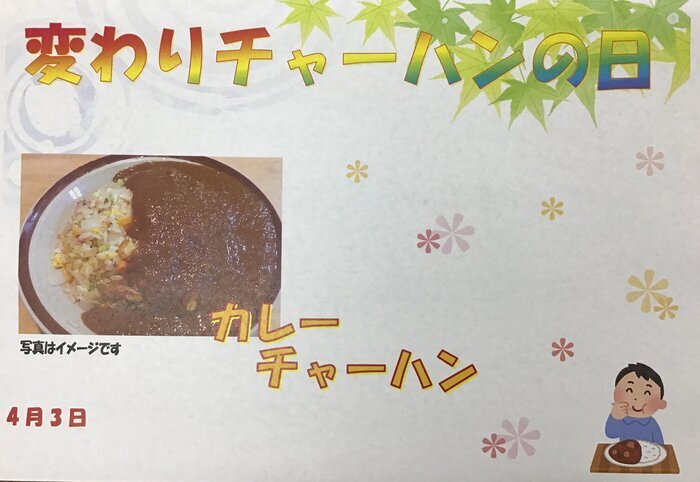 変わりチャーハンの日
写真はイメージです
カレー
チャーハン
4月3日